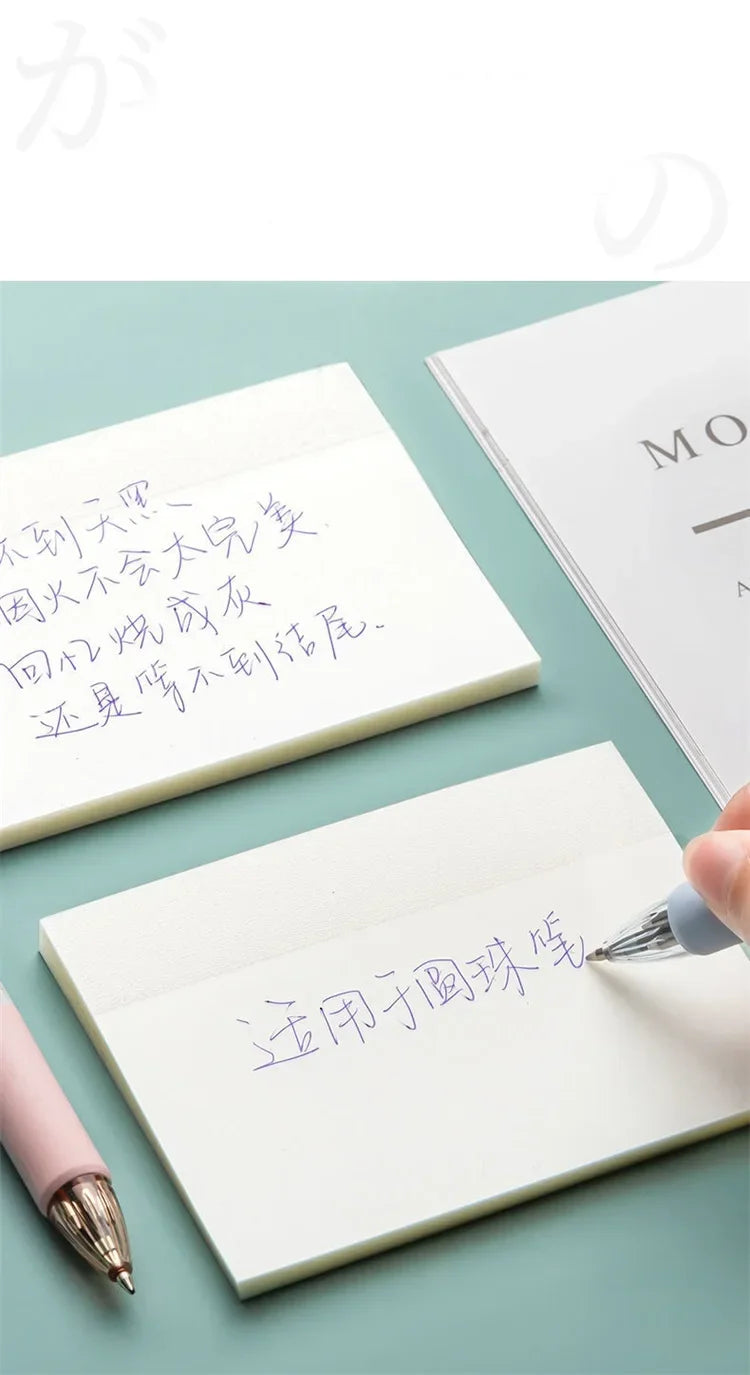 が
の
不到天黑、
因火不会太完美.
回忆烧成灰
还是等不到结尾.
MO
A
适用于圆珠笔